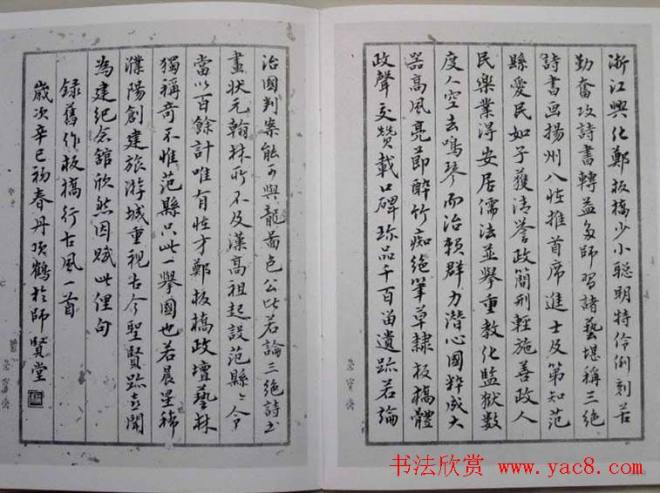 浙江興化鄭板橋少小聰明特伶俐刻苦
勤奮攻詩書轉益多師習諸藝堪稱三絕
詩書画揚州八怪推首席進士及第知范
縣愛民如子獲清譽政簡刑輕施善政人
民樂業得安居儒法並舉重教化監獄數
度人空去鳴琴而治賴群力潛心國粹成大
器高風亮節醉竹痴絕筆草隸板橋體
政聲交贊載口碑珍品千百留遺跡若論
治國判案能可與龍圖包公比若論三絕詩書
畫狀元翰林所不及漢高祖起設范縣縣令
當以百餘計唯有怪才鄭板橋政壇藝林
獨稱奇不惟范縣只此一舉國也若晨星稀
濮陽創建旅游城重視古今聖賢跡喜聞
為建紀念館欣然因賦此俚句
録舊作板橋行古風一首
歲次辛巳初春丹項鶴於師賢堂
书法欣赏:www.yac8.com